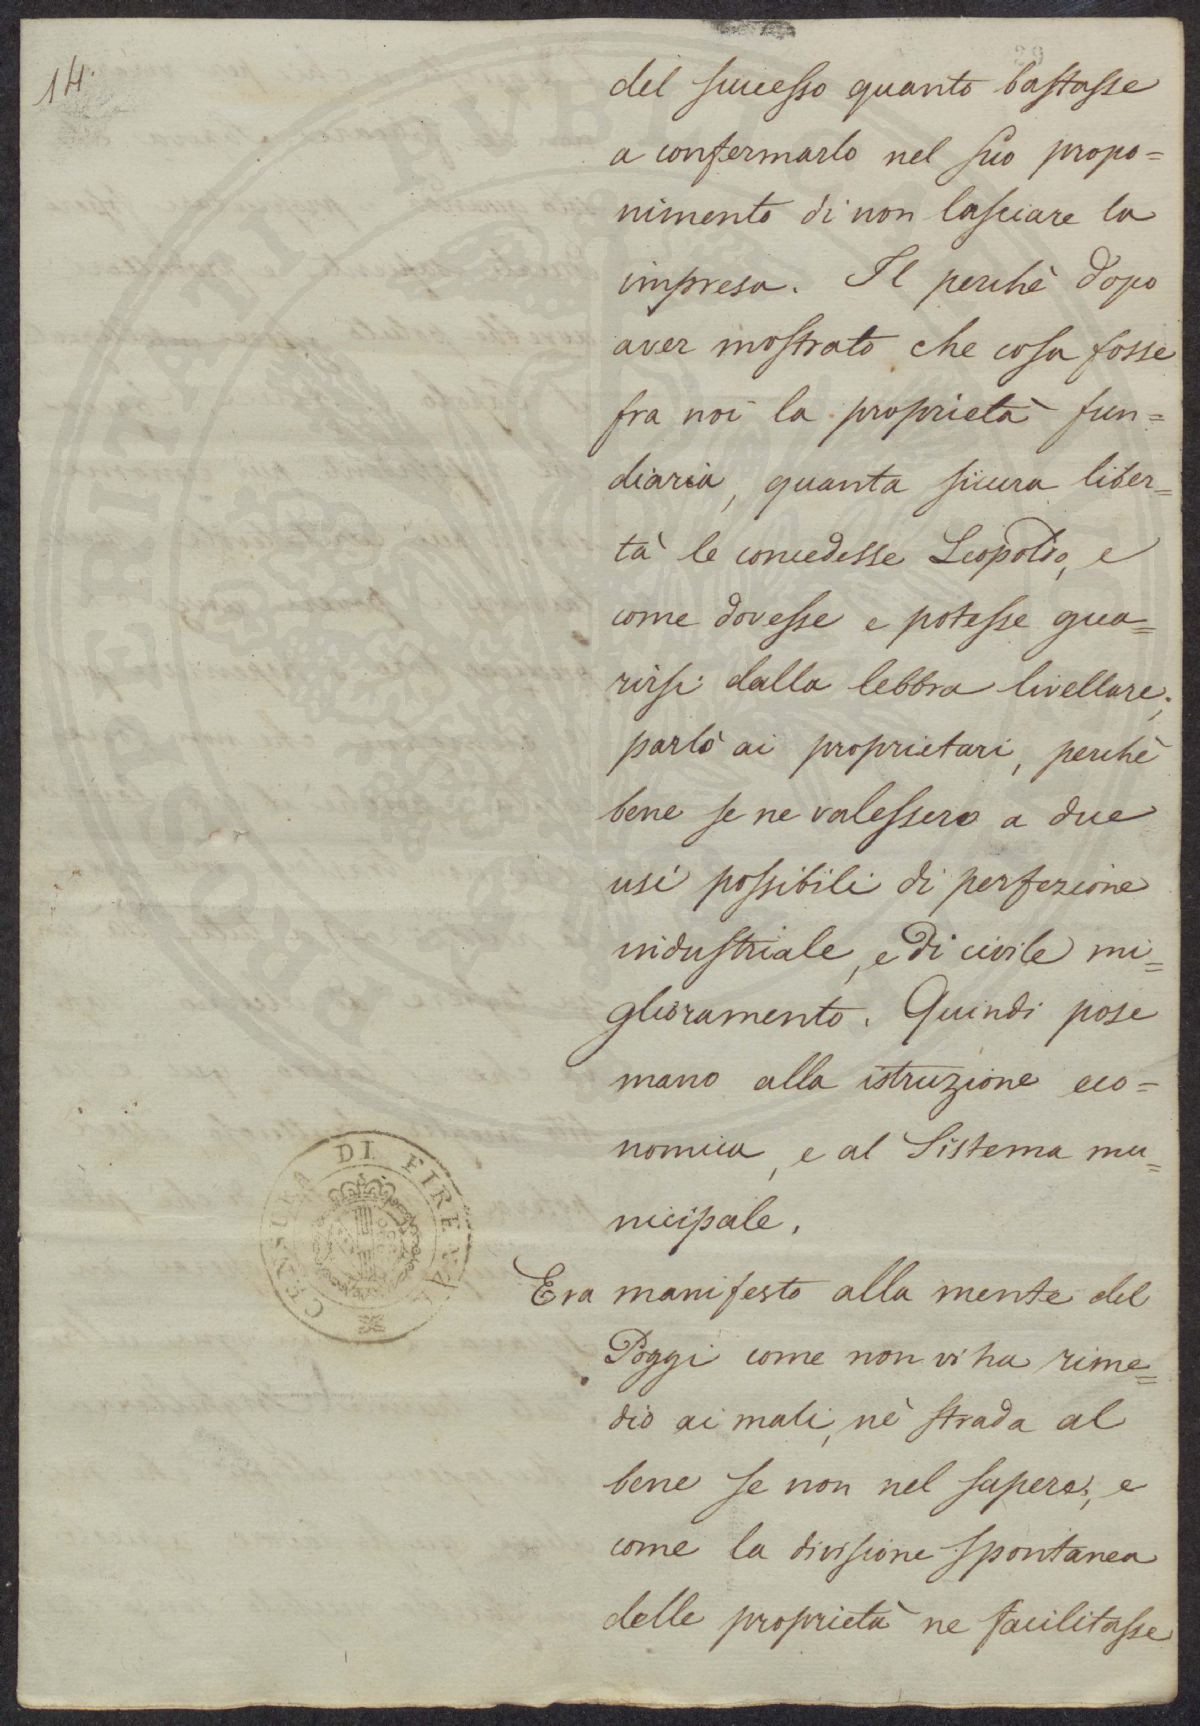 14.
29
del successo quanto bastasse
a confermarlo nel suo propo=
nimento di non lasciare la
impresa. Il perchè dopo
aver mostrato che cosa fosse
fra noi la proprietà fun=
diaria, quanta sicura liber=
tà le concedesse Leopoldo, e
come dovesse e potesse gua=
rirsi dalla lebbra livellare;
parlò ai proprietari, perchè
bene se ne valessero a due
usi possibili di perfezione
industriale, e di civile mi=
glioramento. Quindi pose
mano alla istruzione eco=
nomica, e al Sistema mu=
nicipale.
Era manifesto alla mente del
Poggi come non vi ha rime=
dio ai mali, nè strada al
bene se non nel sapere, e
come la divisione spontanea
delle proprietà ne facilitasse
CENSURA DI FIRENZE